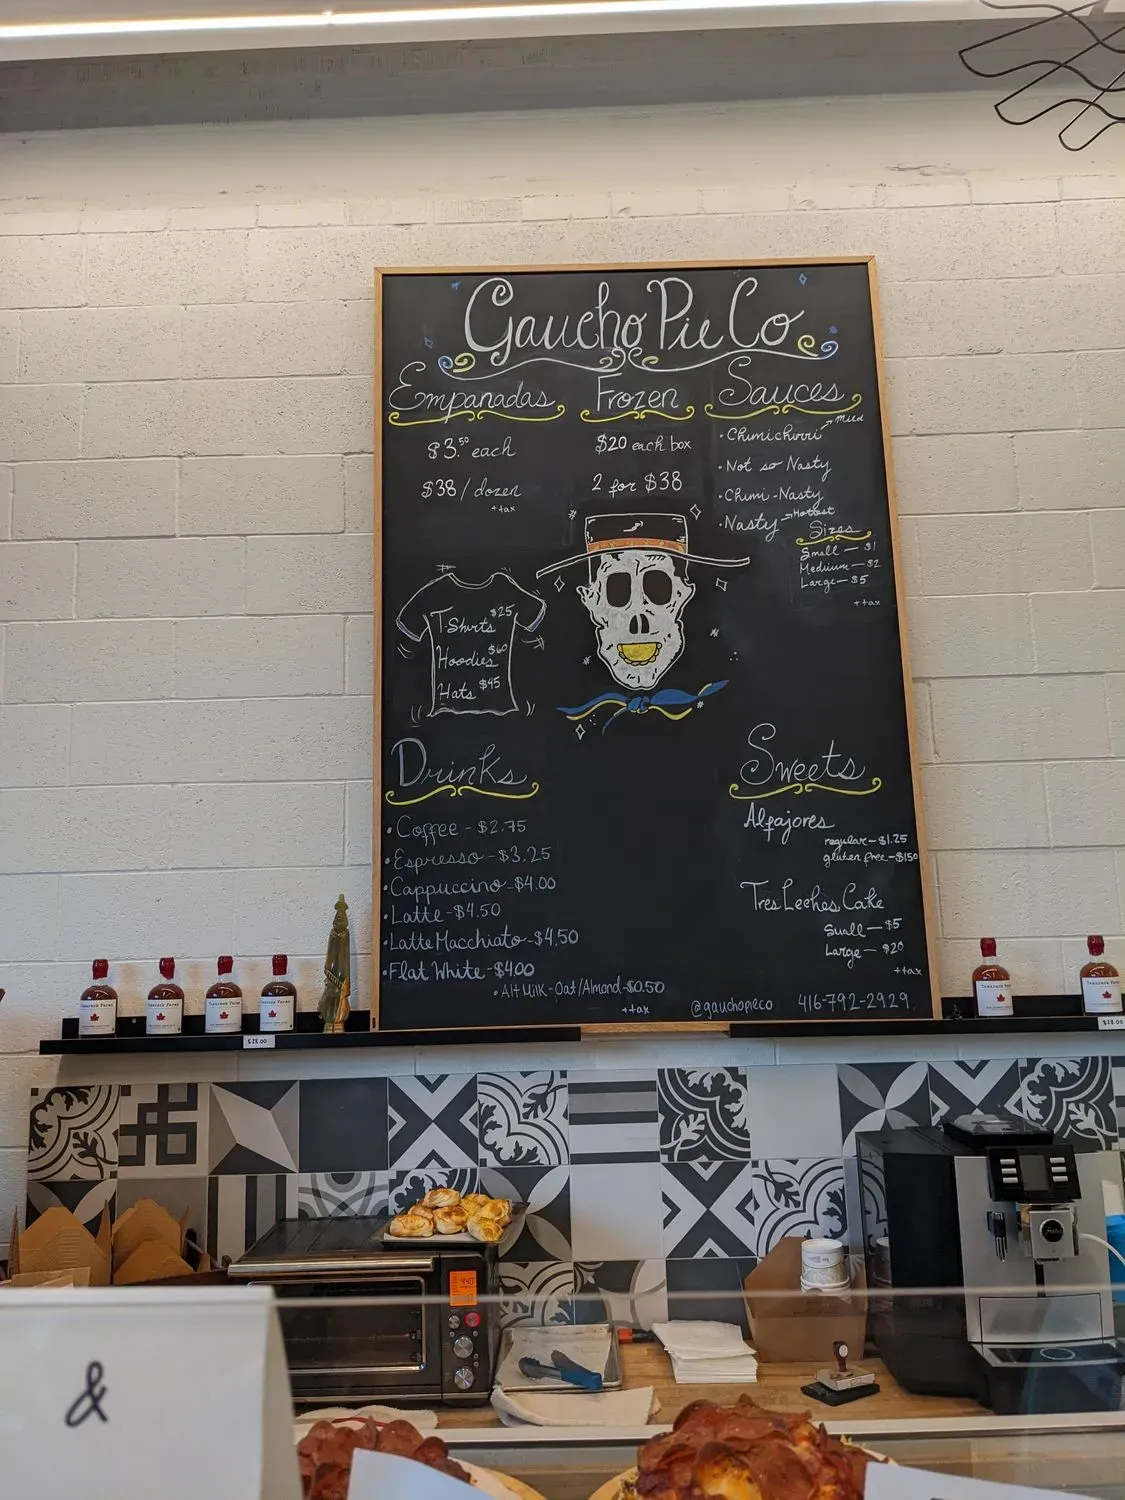 Gaucho Pie Co
Empanadas
$3.50 each
$38 / dozen
+tax
Frozen
$20 each box
2 for $38
Sauces
· Chimichurri → Mild
· Not so Nasty
· Chimi-Nasty
· Nasty → Hottest
Sizes
Small — $1
Medium — $2
Large — $5
+tax
T-Shirts $25
Hoodies $60
Hats $45
Drinks
· Coffee - $2.75
· Espresso - $3.25
· Cappuccino - $4.00
· Latte - $4.50
· Latte Macchiato - $4.50
· Flat White - $4.00
· Alt Milk - Oat/Almond - $0.50
+tax
Sweets
Alfajores
regular - $1.25
gluten free - $1.50
Tres Leches Cake
Small — $5
Large — $20
+tax
@gauchopieco 416-792-2929
Tamarack Farms
Tamarack Farms
Tamarack Farms
Tamarack Farms
Tamarack Farms
Tamarack Farms
$28.00
$28.00
440
&